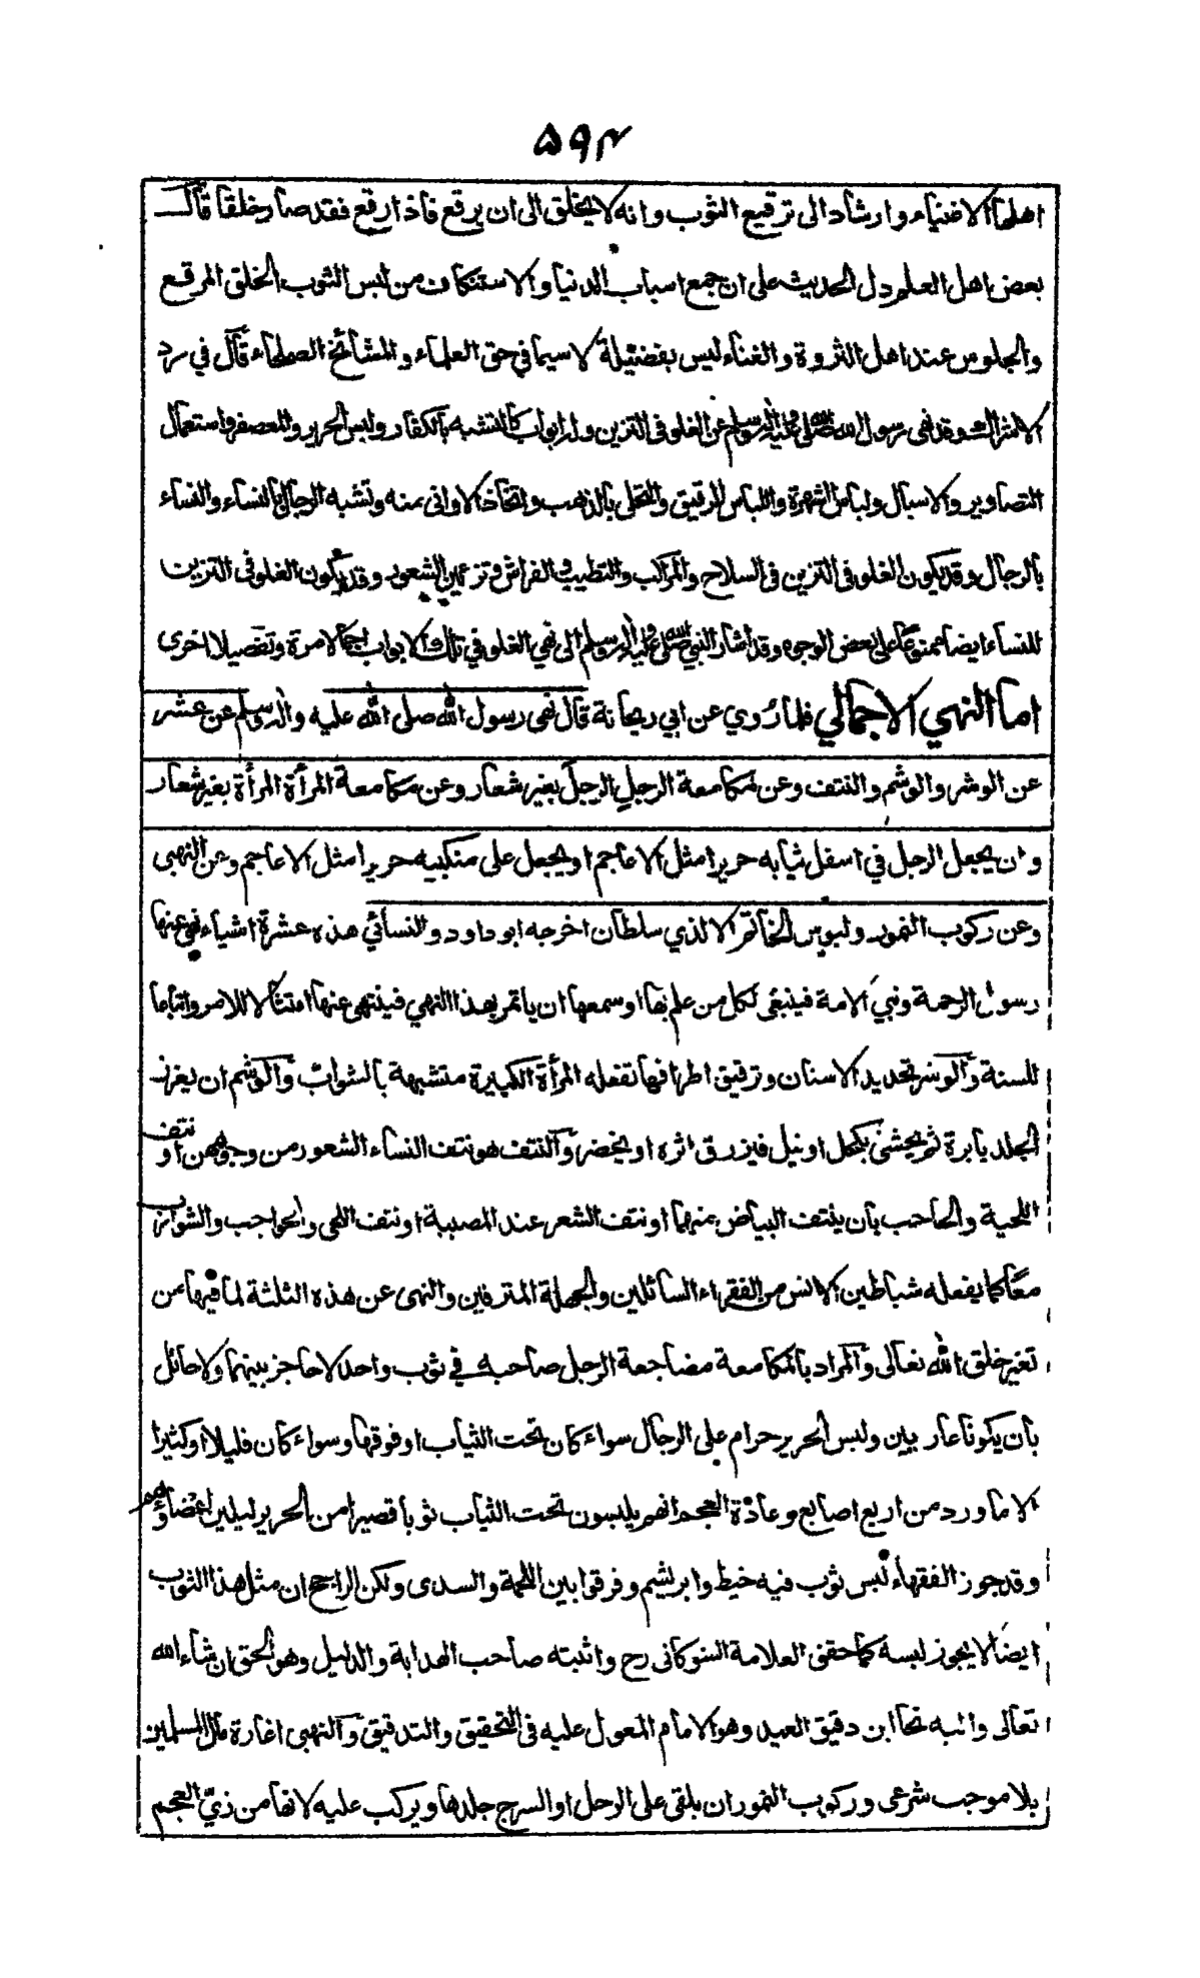 ۵۹۴
اهلها الاغنياء وارشاد الى ترقيع الثوب وانه لا يخلق الى ان يرقع فاذا رقع فقد صار خلقا قال
بعض اهل العلم دل الحديث على ان جمع اسباب الدنيا والاستنكاف من لبس الثوب الخلق المرقع
والجلوس عند اهل الثروة والغناء ليس بفضيلة لا سيما في حق العلماء والمشائخ الصلحاء قال في رد
الاشراك وقد نهى رسول الله صلى الله عليه واله وسلم عن الغلو فى التزين وله ابواب كالتشبه بالكفار ولبس الحرير والمعصفر واستعمال
التصاوير والاسبال ولباس الشهرة واللباس الرقيق والتحلى بالذهب واتخاذ الاوانى منه وتشبه الرجال بالنساء والنساء
بالرجال وقد يكون الغلو فى التزين فى السلاح والمراكب والتطييب والفراش وتزعين الشعور وقد يكون الغلو فى التزين
للنساء ايضا ممنوعا على بعض الوجوه وقد اشار النبي صلى الله عليه واله وسلم الى نهي الغلو في تلك الابواب اجمالا مرة وتفصيلا اخرى
اما النهي الاجمالي فلما رُوي عن ابي ريحانة قال نهى رسول الله صلى الله عليه واله وسلم عن عشر
عن الوشر والوشم والنتف وعن مكامعة الرجلِ الرجلَ بغير شعار وعن مكامعة المرأة المرأة بغير شعار
وان يجعل الرجل في اسفل ثيابه حريرا مثل الاعاجم او يجعل على منكبيه حريرا مثل الاعاجم وعن النهبى
وعن ركوب النمور ولبوس الخاتم الا لذي سلطان اخرجه ابو داود والنسائي هذه عشرة اشياء نهى عنها
رسول الرحمة ونبي الامة فينبغى لكل من علم بها او سمعها ان ياتمر بهذا النهي فينتهى عنها امتثالا للامر واتباعا
للسنة والوشر تحديد الاسنان وترقيق اطرافها تفعله المرأة الكبيرة متشبهة بالشوابّ والوشم ان يغرز
الجلد بابرة ثم يحشى بكحل او نيل فيزرق اثره او يخضر والنتف هو نتف النساء الشعور من وجوههن او نتف
اللحية والحاجب بان ينتف البياض منهما او نتف الشعر عند المصيبة او نتف اللحى والحواجب والشوارب
معًا كما يفعله شياطين الانس من الفقراء السائلين والجهلة المترفين والنهى عن هذه الثلثة لما فيها من
تغير خلق الله تعالى والمراد بالمكامعة مضاجعة الرجل صاحبه في ثوب واحد لا حاجز بينهما ولا حائل
بان يكونا عاريين ولبس الحرير حرام على الرجال سواء كان تحت الثياب او فوقها وسواء كان قليلا او كثيرا
الا ما ورد من اربع اصابع وعادة العجم انهم يلبسون تحت الثياب ثوبا قصيرا من الحرير ليلين اعضاؤهم
وقد جوز الفقهاء لبس ثوب فيه خيط وابريشم وفرقوا بين اللحمة والسدى ولكن الراجح ان مثل هذا الثوب
ايضا لا يجوز لبسه كما حقق العلامة الشوكانى رح واثبته صاحب الهداية والدليل وهو الحق ان شاء الله
تعالى واليه نحا ابن دقيق العيد وهو الامام المعول عليه فى التحقيق والتدقيق والنهبى اغارة مال المسلمين
بلا موجب شرعى وركوب النمور ان يلقى على الرحل او السرج جلدها ويركب عليه لانها من زيّ العجم